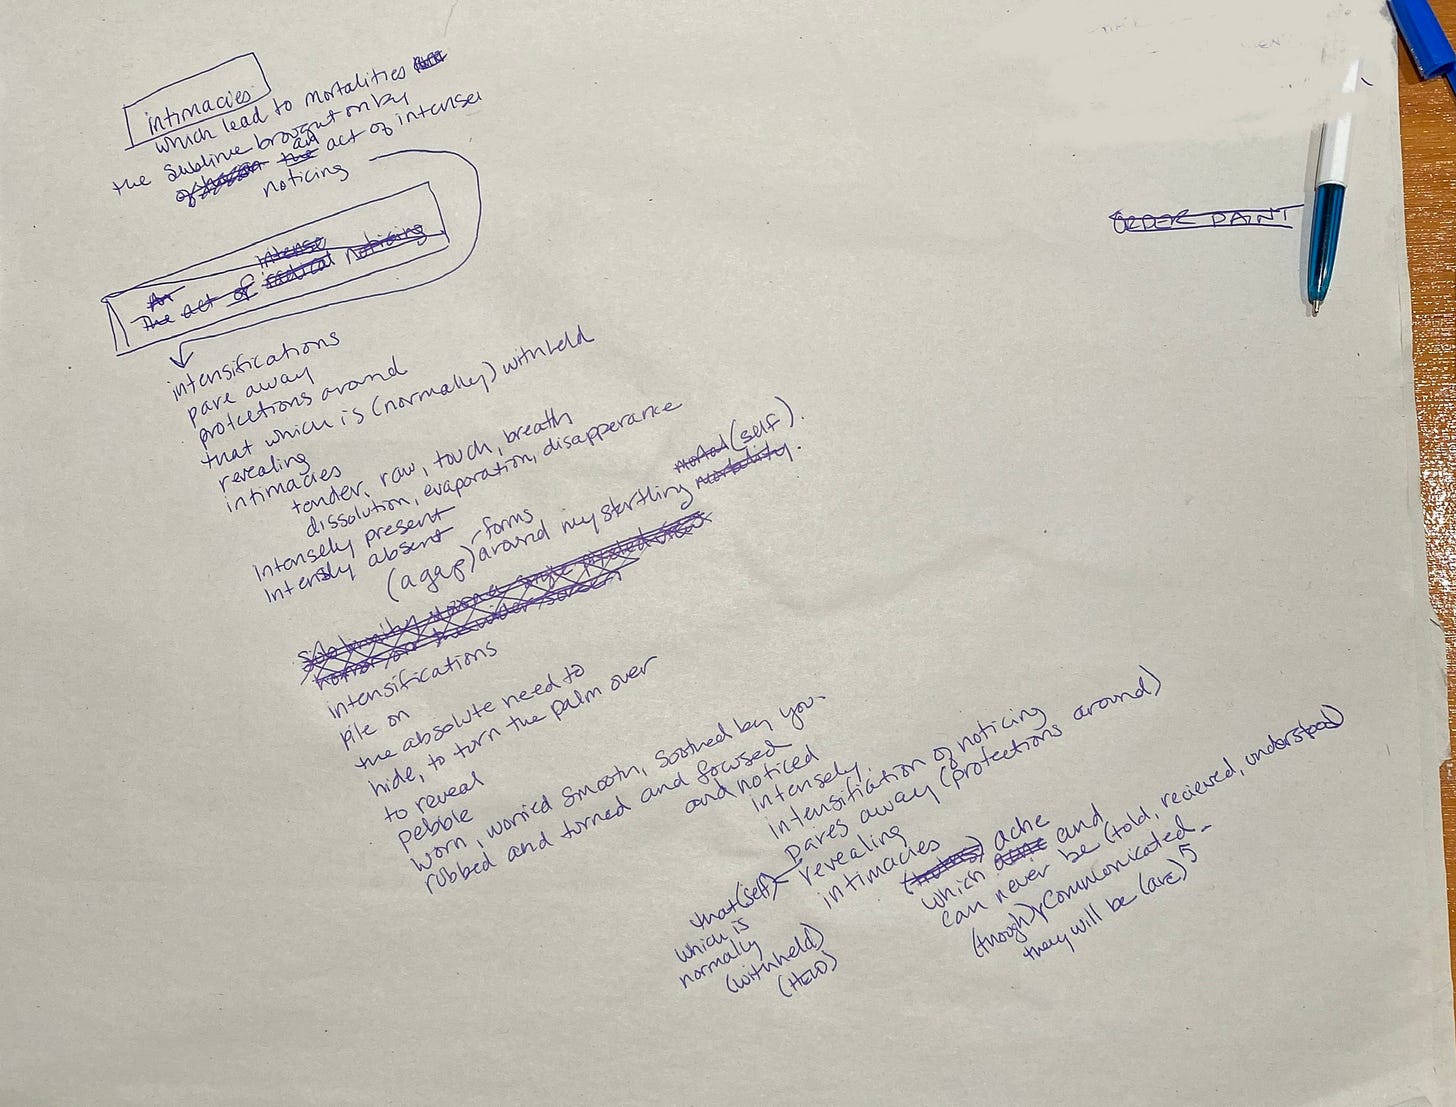 intimacies
which lead to mortalities
the sublime brought on by
of the an act of intense
noticing
An intense
The act of radical noticing
intensifications
pare away
protcetions around
that which is (normally) withheld
revealing
intimacies
tender, raw, touch, breath
dissolution, evaporation, disapperance
intensely present
intensly absent
forms mortal (self).
(agap) around my startling mortality.
intensifications
pile on
the absolute need to
hide, to turn the palm over
to reveal
pebble
worn, worried smooth, soothed by you.
rubbed and turned and focused
and noticed
intensely.
intensifiation of noticing
pares away (protections around)
that (self) revealing
which is intimacies
normally
(withheld)
(HELD)
ache
which and
can never be (told, recieved, understood)
(though) communicated
they will be (are)
ORDER PAINT